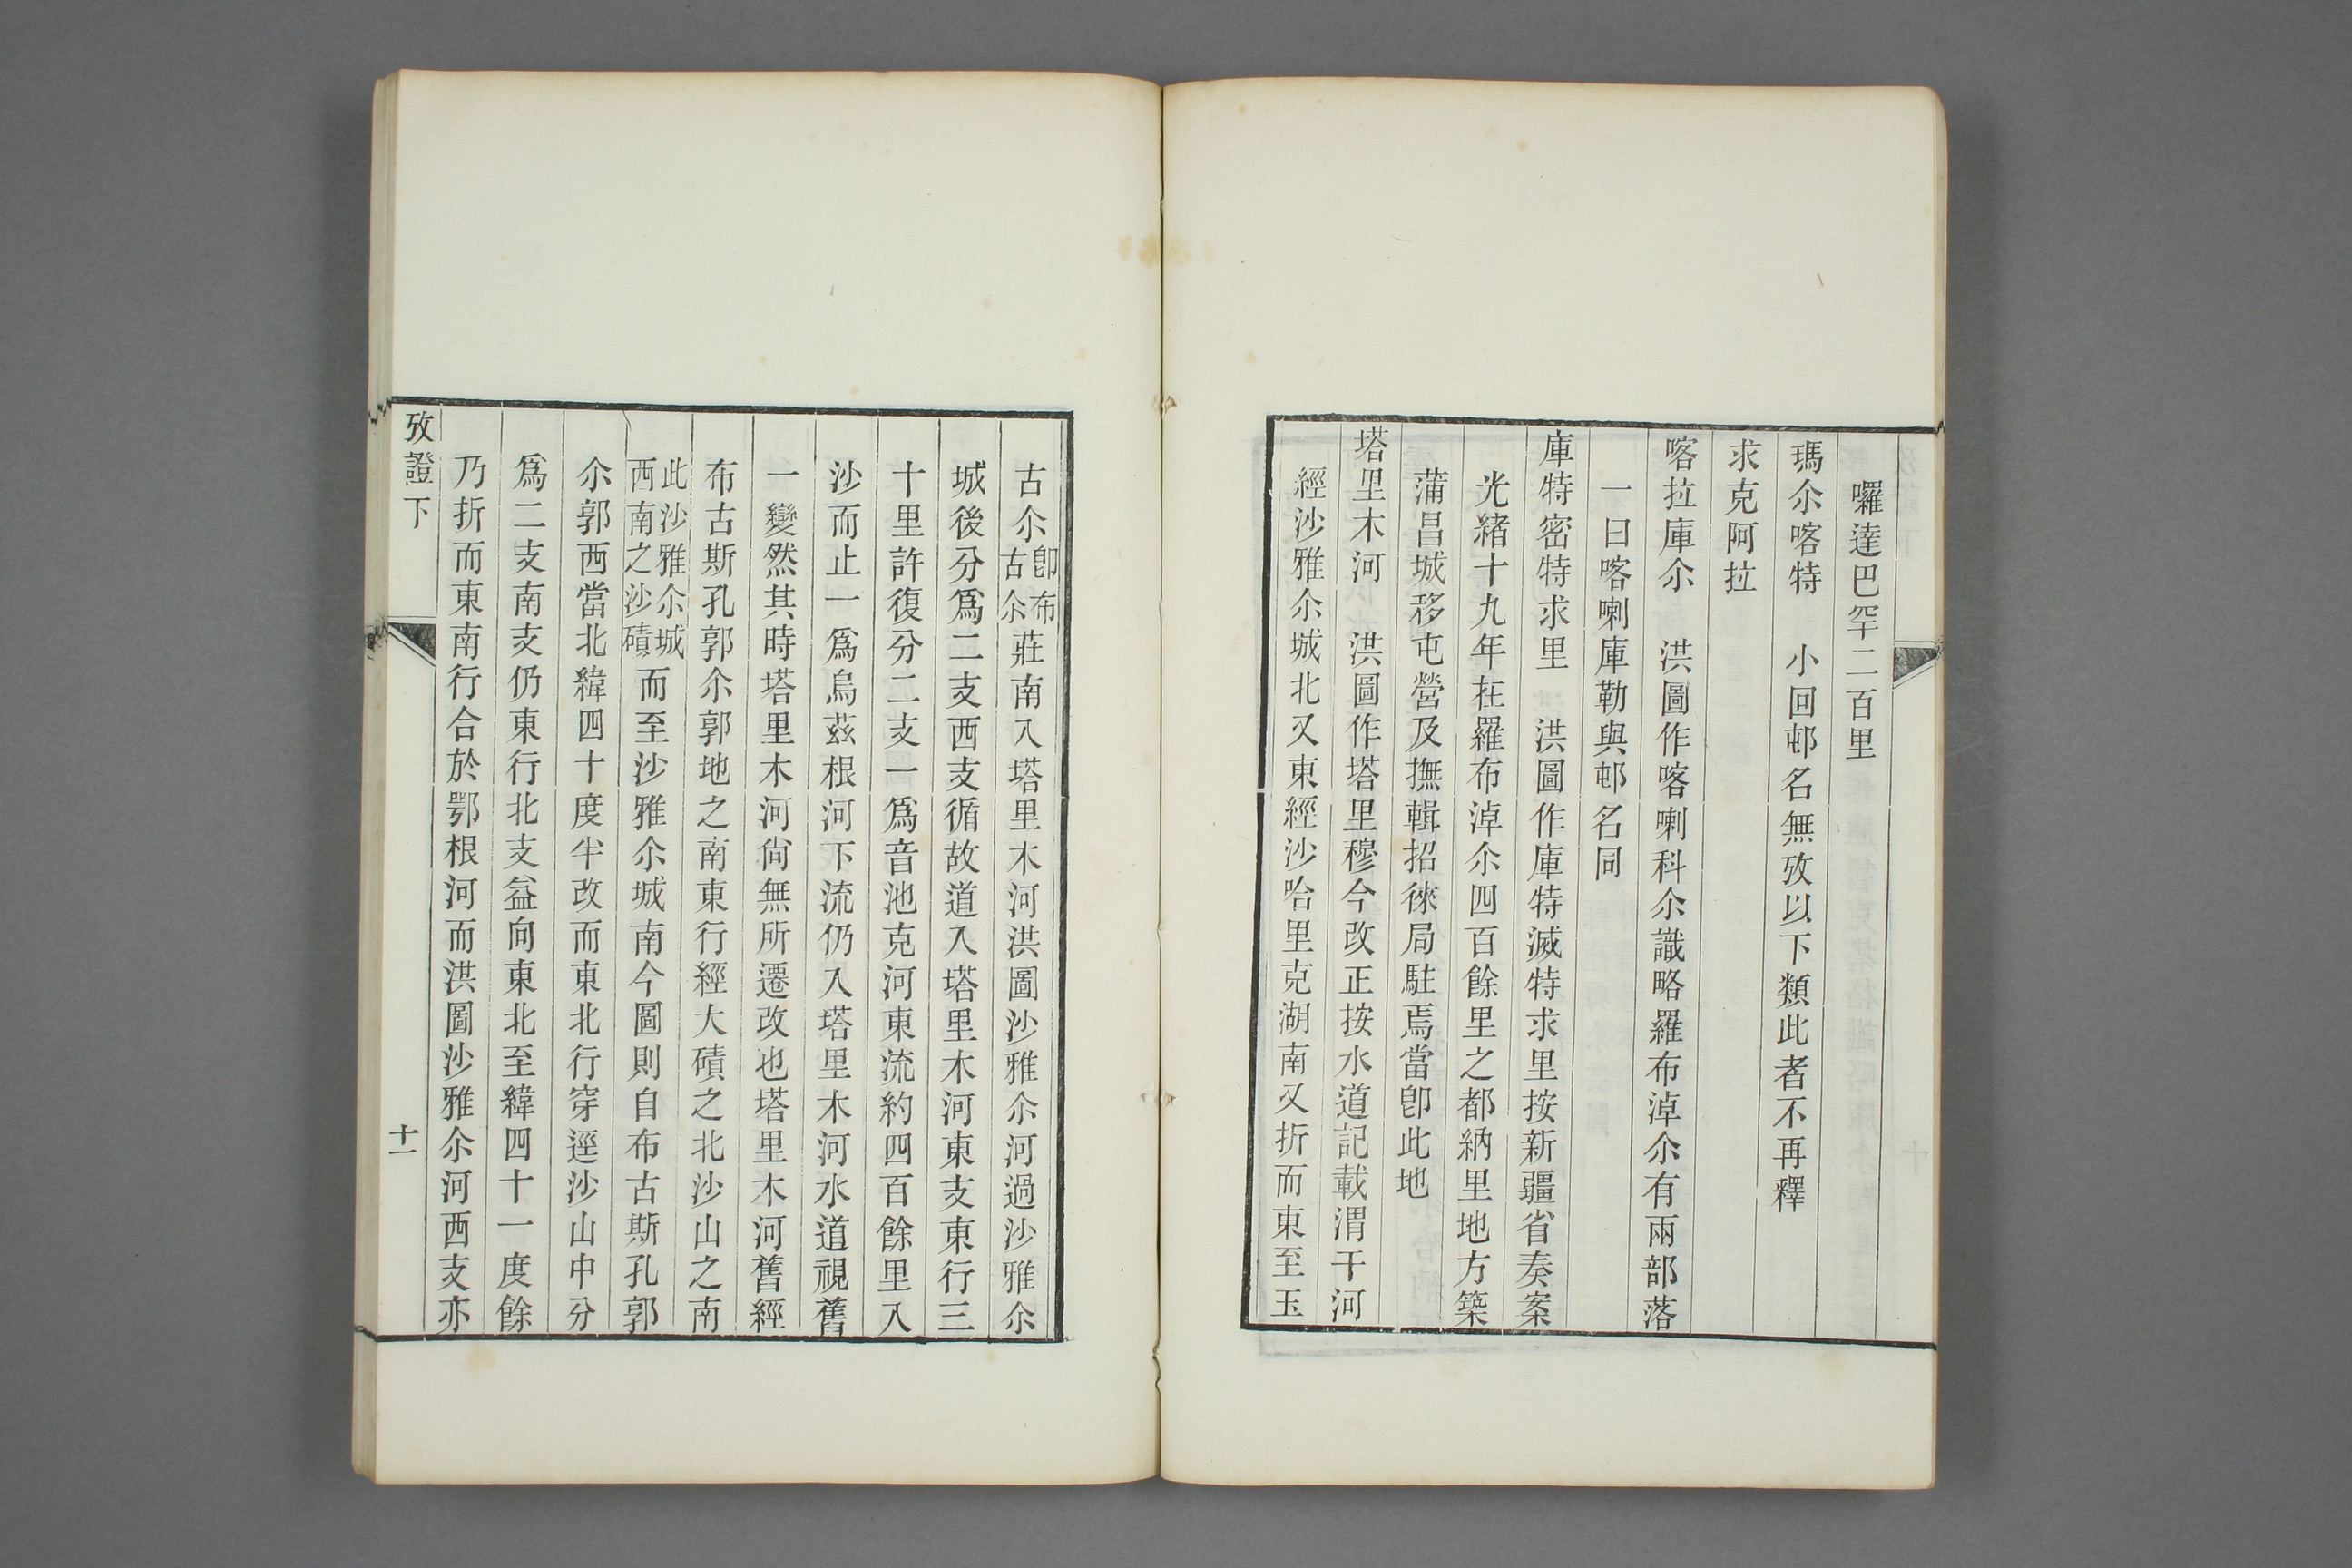 囉達巴罕二百里
瑪尒喀特　小回邨名無攷以下類此者不再釋
求克阿拉
喀拉庫尒　洪圖作喀喇科尒識略羅布淖尒有兩部落
一曰喀喇庫勒與邨名同
庫特密特求里　洪圖作庫特滅特求里按新疆省奏案
光緒十九年在羅布淖尒四百餘里之都納里地方築
蒲昌城移屯營及撫輯招徠局駐焉當卽此地
塔里木河　洪圖作塔里穆今改正按水道記載渭干河
經沙雅尒城北又東經沙哈里克湖南又折而東至玉
古尒卽布古尒莊南入塔里木河洪圖沙雅尒河過沙雅尒
城後分爲二支西支循故道入塔里木河東支東行三
十里許復分二支一爲音池克河東流約四百餘里入
沙而止一爲烏茲根河下流仍入塔里木河水道視舊
一變然其時塔里木河尙無所遷改也塔里木河舊經
布古斯孔郭尒郭地之南東行經大磧之北沙山之南
此沙雅尒城西南之沙磧而至沙雅尒城南今圖則自布古斯孔郭
尒郭西當北緯四十度半改而東北行穿逕沙山中分
爲二支南支仍東行北支益向東北至緯四十一度餘
乃折而東南行合於鄂根河而洪圖沙雅尒河西支亦
攷證下
十一